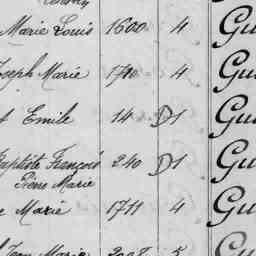 Marie Louis 1600 4 Gu
Joseph Marie 1710 4 Gu
Emile 14 D1 Gu
Baptiste François 240 D1 Gu
Pierre Marie
Marie 1711 4 Gu
Jean Marie 2008 5 Gu